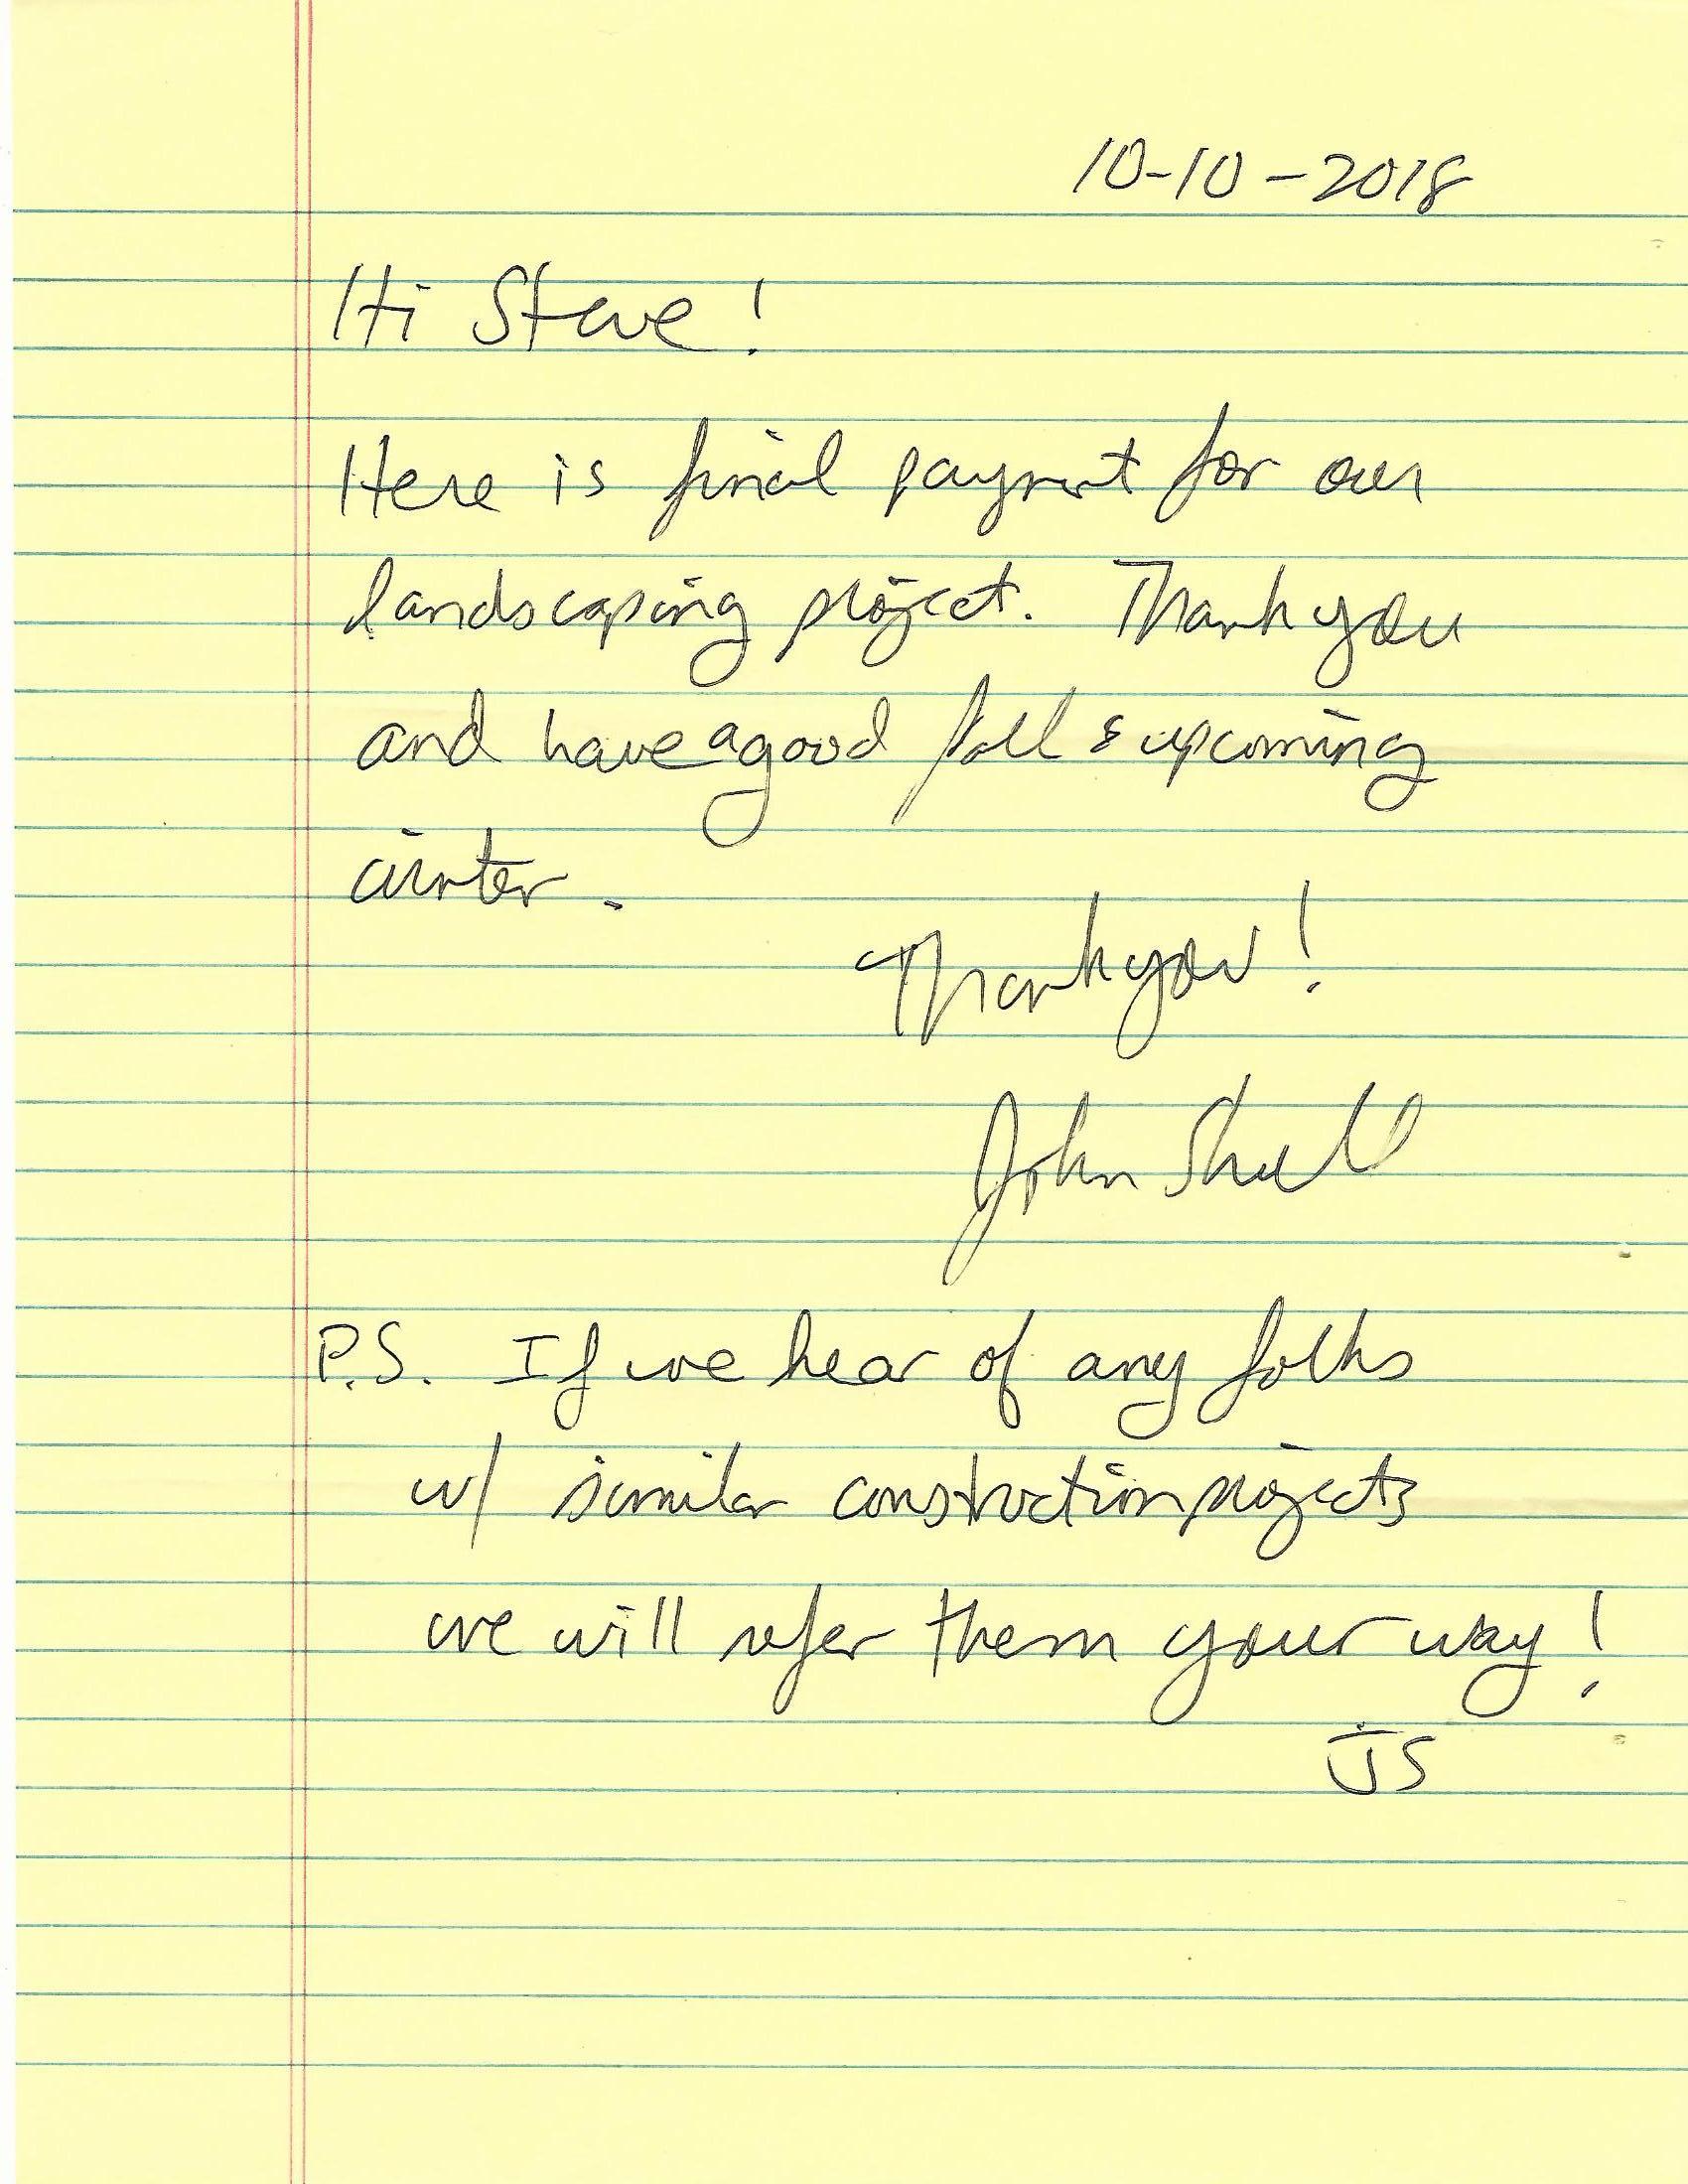 10-10-2018
Hi Steve!
Here is final payment for our
landscaping project. Thank you
and have a good fall & upcoming
winter.
Thank you!
John
P.S. If we hear of any folks
w/ similar construction projects
we will refer them your way!
JS